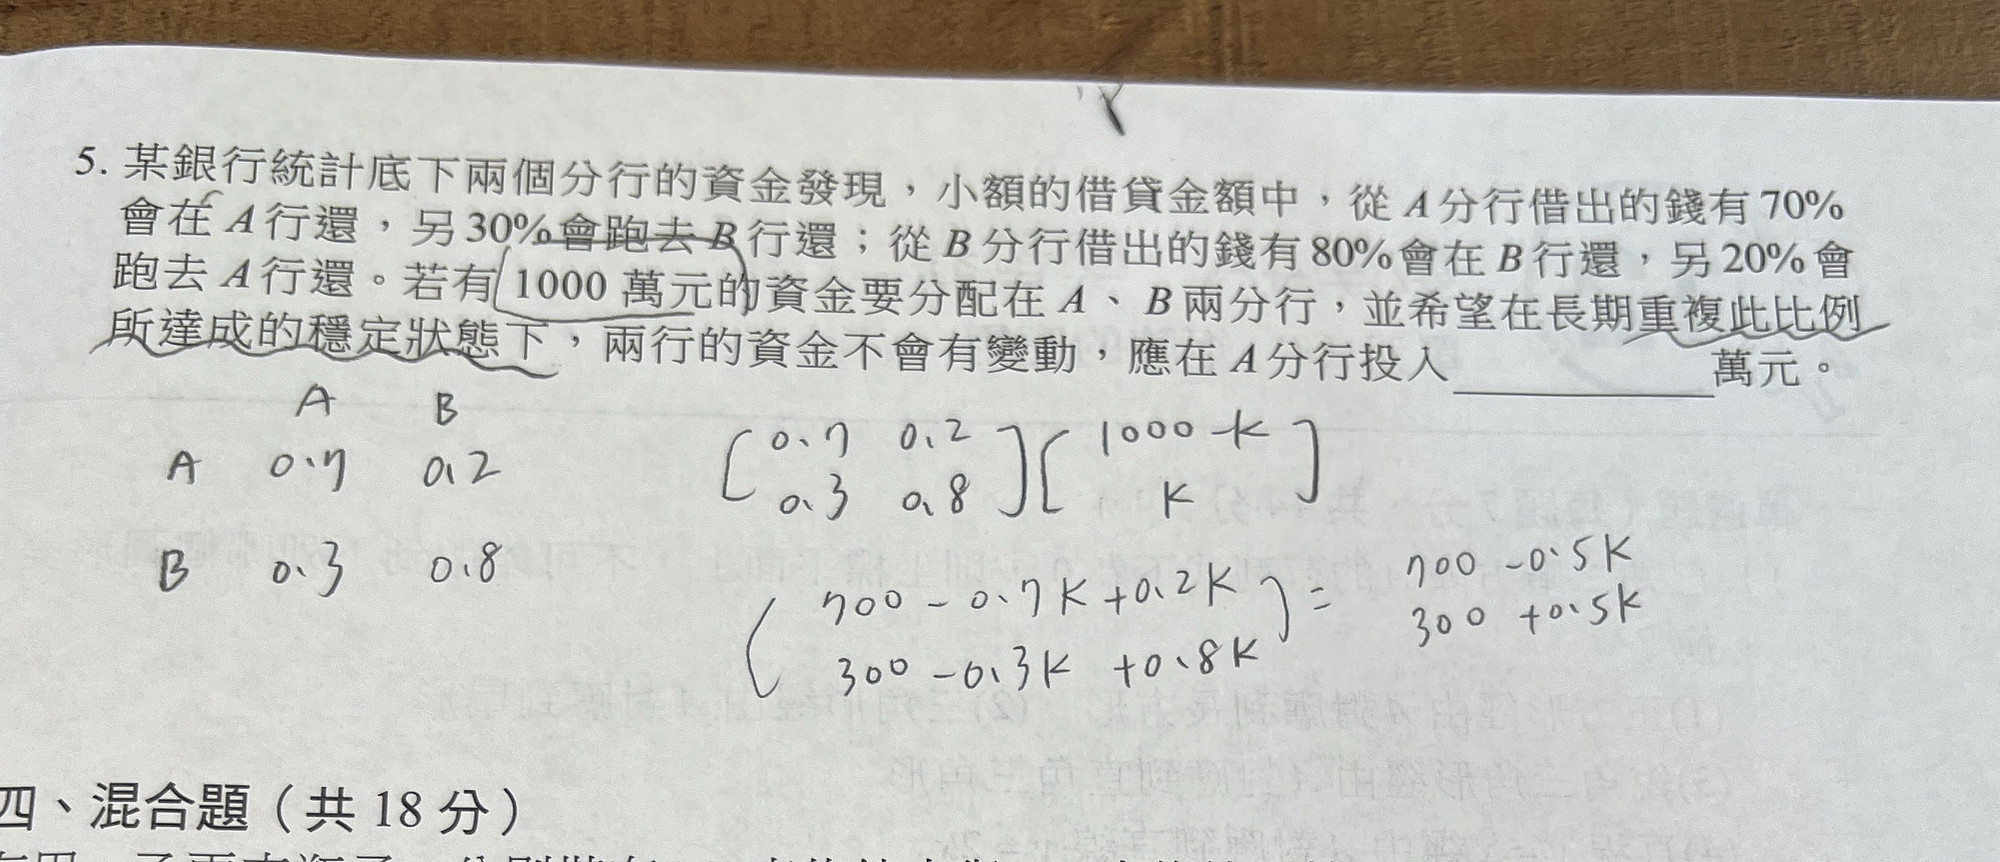 5. 某銀行統計底下兩個分行的資金發現，小額的借貸金額中，從 A 分行借出的錢有 70%
會在 A 行還，另 30% 會跑去 B 行還；從 B 分行借出的錢有 80% 會在 B 行還，另 20% 會
跑去 A 行還。若有 1000 萬元的資金要分配在 A、B 兩分行，並希望在長期重複此比例
所達成的穩定狀態下，兩行的資金不會有變動，應在 A 分行投入＿＿＿＿萬元。
A B
A 0.7 0.2
B 0.3 0.8
[0.7 0.2] [1000-k]
[0.3 0.8] [k]
(700-0.7k+0.2k) = 700-0.5k
(300-0.3k+0.8k) 300+0.5k
四、混合題（共 18 分）